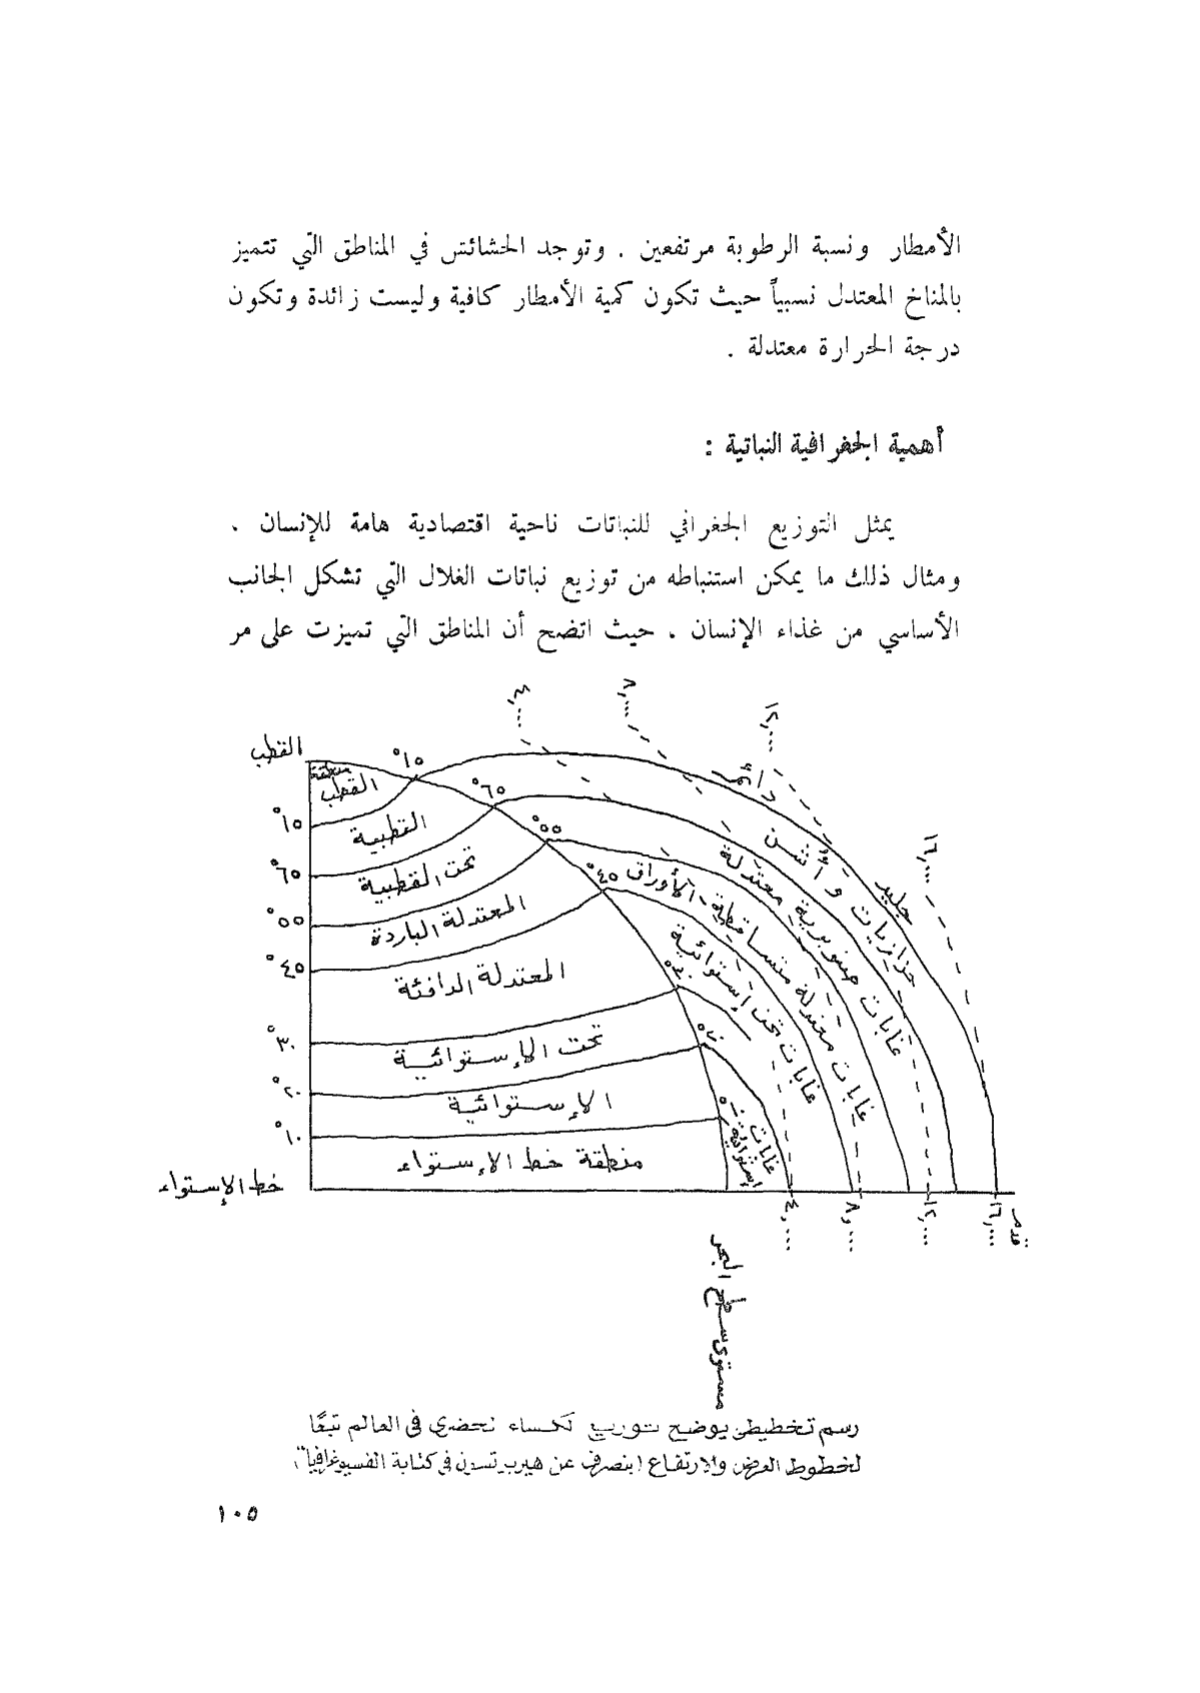 الأمطار ونسبة الرطوبة مرتفعين . وتوجد الحشائش في المناطق التي تتميز
بالمناخ المعتدل نسبياً حيث تكون كمية الأمطار كافية وليست زائدة وتكون
درجة الحرارة معتدلة .
أهمية الجغرافية النباتية :
يمثل التوزيع الجغرافي للنباتات ناحية اقتصادية هامة للإنسان .
ومثال ذلك ما يمكن استنباطه من توزيع نباتات الغلال التي تشكل الجانب
الأساسي من غذاء الإنسان . حيث اتضح أن المناطق التي تميزت على مر
٤,٠٠٠
٨,٠٠٠
١٢,٠٠٠
١٦,٠٠٠
القطب
منطقة
القطب
°١٥
°٦٥
°٥٥
°٤٥
°٣٠
°٢٠
°١٠
°١٥
القطبية
°٦٥
تحت القطبية
°٥٥
المعتدلة الباردة
°٤٥
المعتدلة الدافئة
°٣٠
تحت الإستوائية
°٢٠
الإستوائية
°١٠
منطقة خط الإستواء
خط الإستواء
جليد دائم
حزازيات وأشن
غابات صنوبرية معتدلة
غابات معتدلة متساقطة الأوراق
غابات تحت إستوائية
غابات إستوائية
٤,٠٠٠
٨,٠٠٠
١٢,٠٠٠
١٦,٠٠٠
قدم
مستوى سطح البحر
رسم تخطيطى يوضح توزيع لكساء لخضرى فى العالم تبعًا
لخطوط العرض والارتفاع (بتصرف عن هيربرتسن فى كتابة الفسيوغرافيا")
١٠٥